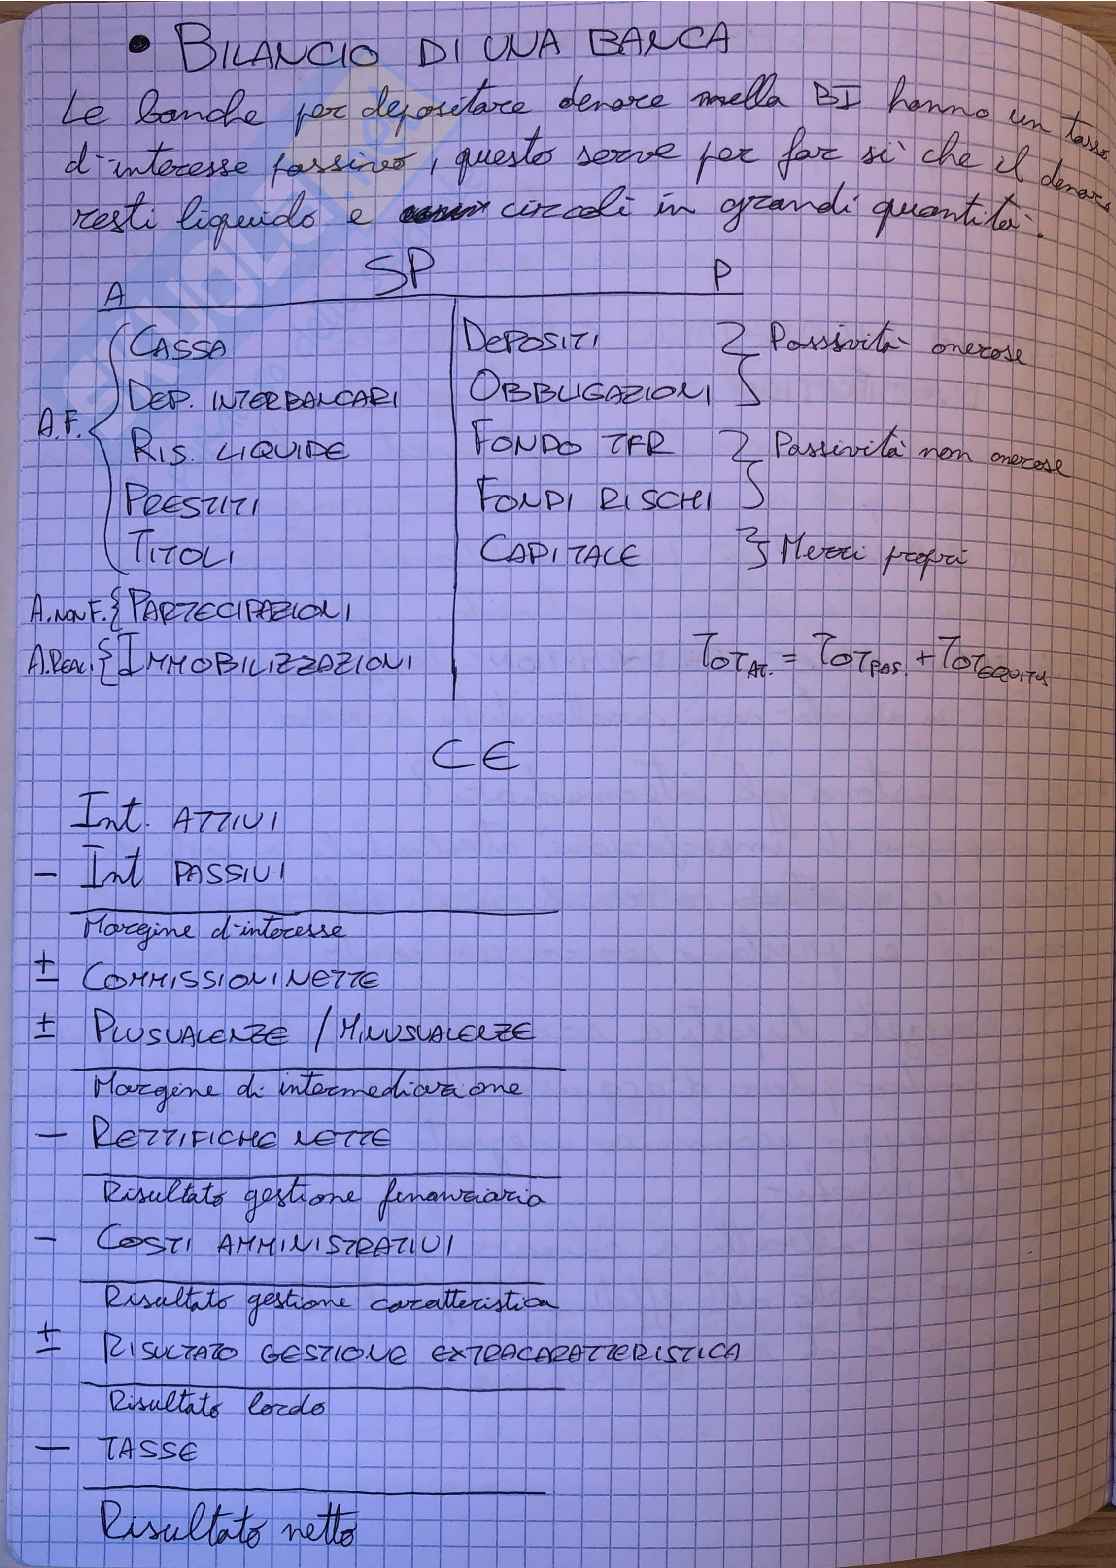 • BILANCIO DI UNA BANCA
Le banche per depositare denare nella BI hanno un tasso
d'interesse passivo, questo serve per far sì che il denaro
resti liquido e circoli in grandi quantità.
SP
A P
CASSA DEPOSITI } Passività onerose
DEP. INTERBANCARI OBBLIGAZIONI
A.F. { RIS. LIQUIDE FONDO TFR } Passività non onerose
PRESTITI FONDI RISCHI
TITOLI CAPITALE } Mezzi propri
A. NON F. { PARTECIPAZIONI
A. REALI { IMMOBILIZZAZIONI TOT AT. = TOT PAS. + TOT EQUITY
CE
Int. ATTIVI
- Int PASSIVI
Margine d'interesse
± COMMISSIONI NETTE
± PLUSVALENZE / MINUSVALENZE
Margine di intermediazione
- RETTIFICHE NETTE
Risultato gestione finanziaria
- COSTI AMMINISTRATIVI
Risultato gestione caratteristica
± RISULTATO GESTIONE EXTRACARATTERISTICA
Risultato lordo
- TASSE
Risultato netto